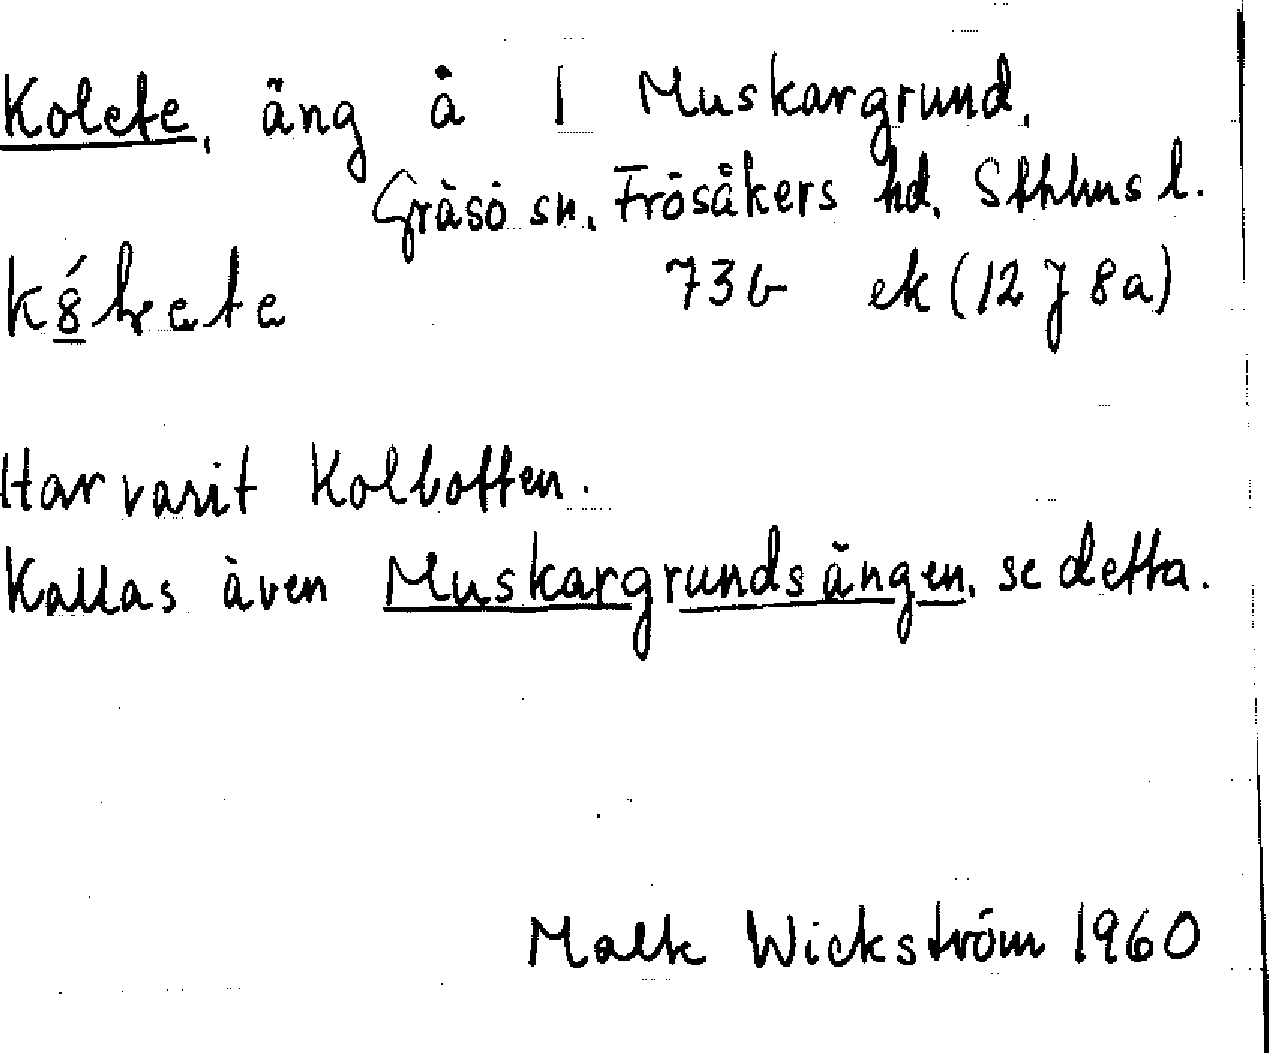 Kolete, äng å 1 Muskargrund,
Gräsö sn, Frösåkers hd, Sthlms l.
73b ek (12 J 8a)
Har varit Kolbotten.
Kallas även Muskargrundsängen, se detta.
Wickström 1960